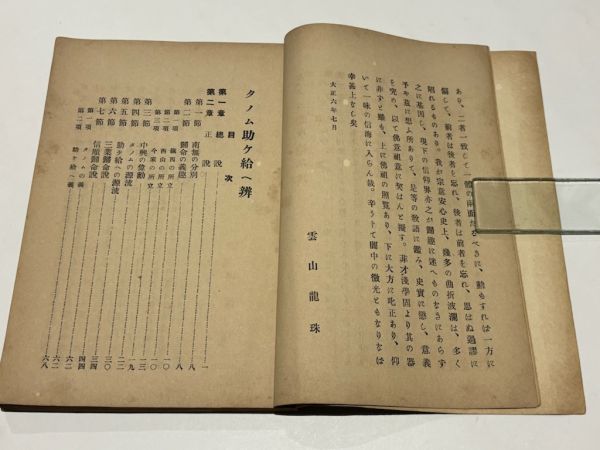 あり、二者一致して一體の兩面たるべきに、動もすれば一方に
偏して、前者は後者を忘れ、後者は前者を忘れ、思はぬ過謬に
陷れるものあり。我が宗意安心史上、幾多の曲折波瀾は、多く
之に基因し、現下の信仰界亦之が歸趣に迷へものなきにあらず
予年茲に想ふ所ありて、是等の敎語に鑑み、史實に徵し、意義
を究め、以て佛意祖意に契はんと擬す。菲才淺學固より其の器
に非ずと雖も、上に佛祖の照覽あり、下に大方に叱正あり、仰
いて一味の信海に入らん哉。辛うトて闇中の微光ともなりなは
幸甚上なし矣
大正六年七月
雲山龍珠
タノム助ケ給へ辨
目次
第一章 總說 一
第二章 正說 八
第一節 南無の分別 八
第二節 歸命の義趣 一〇
第一項 鎭西の所立 一〇
第二項 西山の所立
第三項 今家の所立
第三節 中興の發勳 一三
第四節 タノムの源流 一九
第五節 助ケ給への源流 二二
第六節 三業歸命說 三〇
第七節 信順歸命說 三四
第一項 タノムの義 六二
第二項 助ケ給への義 六八